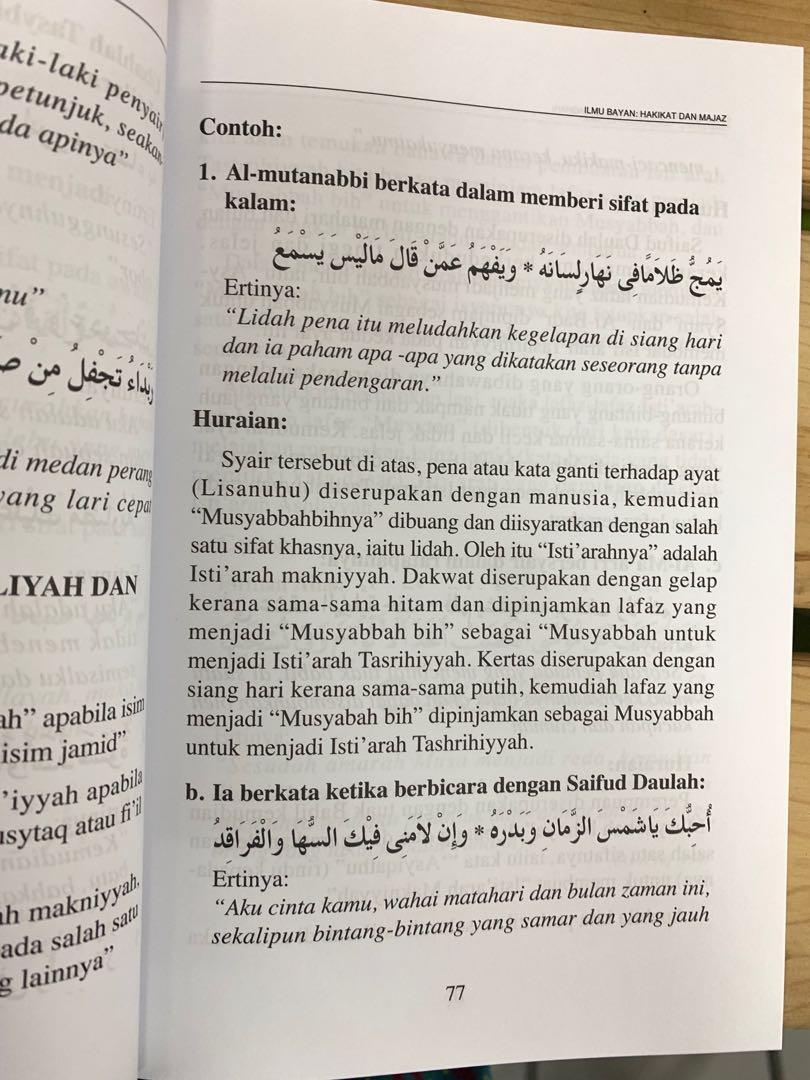 aki-laki penyair
petunjuk, seakan
da apinya”
nu”
رَبْدَاءُ تَجْفِلُ مِنْ
di medan perang
yang lari cepat
LIYAH DAN
ah” apabila isim
isim jamid”
’iyyah apabila
usytaq atau fi’il
ah makniyyah.
ada salah satu
g lainnya”
ILMU BAYAN: HAKIKAT DAN MAJAZ
Contoh:
1. Al-mutanabbi berkata dalam memberi sifat pada
kalam:
يَمُجُّ ظَلَامًافِى نَهَارٍلِسَانَهُ * وَيَفْهَمُ عَمَّنْ قَالَ مَالَيْسَ يَسْمَعُ
Ertinya:
“Lidah pena itu meludahkan kegelapan di siang hari
dan ia paham apa -apa yang dikatakan seseorang tanpa
melalui pendengaran.”
Huraian:
Syair tersebut di atas, pena atau kata ganti terhadap ayat
(Lisanuhu) diserupakan dengan manusia, kemudian
“Musyabbahbihnya” dibuang dan diisyaratkan dengan salah
satu sifat khasnya, iaitu lidah. Oleh itu “Isti’arahnya” adalah
Isti’arah makniyyah. Dakwat diserupakan dengan gelap
kerana sama-sama hitam dan dipinjamkan lafaz yang
menjadi “Musyabbah bih” sebagai “Musyabbah untuk
menjadi Isti’arah Tasrihiyyah. Kertas diserupakan dengan
siang hari kerana sama-sama putih, kemudiah lafaz yang
menjadi “Musyabah bih” dipinjamkan sebagai Musyabbah
untuk menjadi Isti’arah Tashrihiyyah.
b. Ia berkata ketika berbicara dengan Saifud Daulah:
أُحِبُّكَ يَاشَمْسَ الزَّمَانِ وَبَدْرَهُ * وَإِنْ لَامَنِى فِيْكَ السُّهَا وَالْفَرَاقِدُ
Ertinya:
“Aku cinta kamu, wahai matahari dan bulan zaman ini,
sekalipun bintang-bintang yang samar dan yang jauh
77